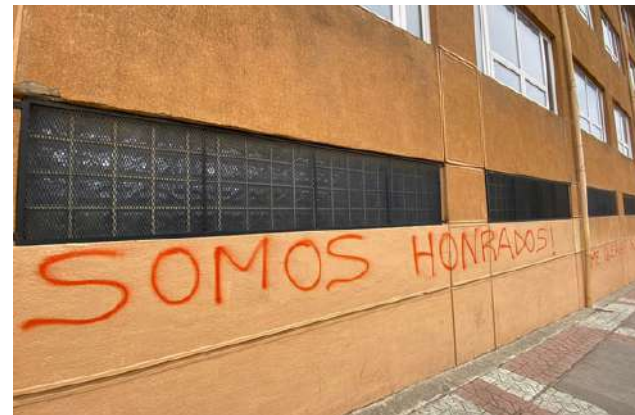 SOMOS HONRADOS!